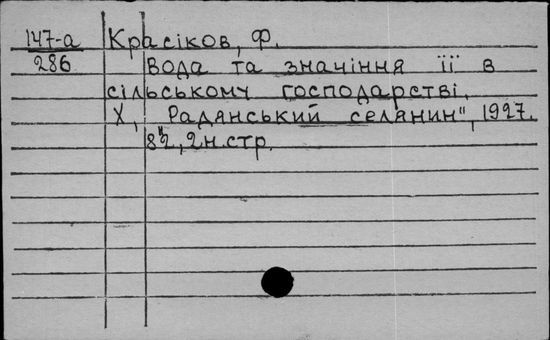 147-а Красіков, Ф.
286 Вода та значіння її в
сільському господарстві.
Х, „Радянський селянин", 1927.
82, 2н.стр.